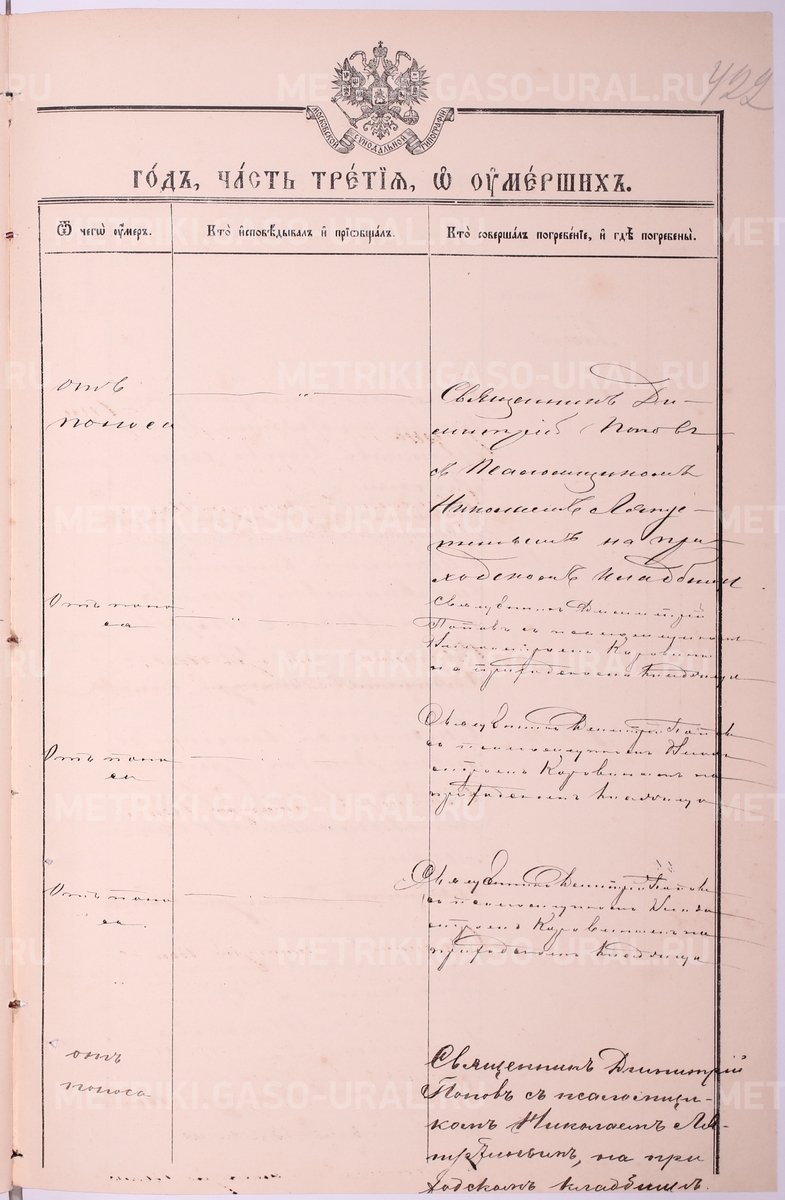 422
МОСКОВСКОЙ СУНОДАЛЬНОЙ ТИПОГРАФІИ
ГО́ДЪ, ЧА́СТЬ ТРЕ́ТІЯ, Ѡ ОУМЕ́РШИХЪ.
Ѿ чегѡ̀ оу҆́меръ.
Кто̀ и҆сповѣ́дывалъ и҆ прїѡбща́лъ.
Кто̀ соверша́лъ погребе́нїе, и҆ гдѣ̀ погребены̀.
отъ
поноса
Священникъ Ди-
митрій Поповъ
съ Псаломщикомъ
Николаемъ
на при-
ходскомъ кладбищѣ
Отъ поно
са
Священникъ Димитрій
Поповъ съ псаломщикомъ
Коровинымъ
на приходскомъ кладбище
Отъ поно
са
Священникъ Димитрій Поповъ
съ псаломщикомъ
Коровинымъ на
приходскомъ кладбище
Отъ поно
са.
Священникъ Димитрій Поповъ
съ псаломщикомъ
Коровинымъ на
приходскомъ кладбище
отъ
поноса
Священникъ Димитрій
Поповъ съ псаломщи-
комъ Николаемъ
на при
ходскомъ кладбищѣ.
METRIKI.GASO-URAL.RU